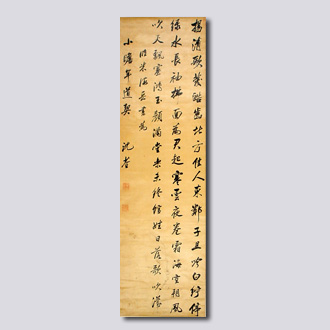 揚清歌發皓齒北方佳人東鄰子且吟白紵停
綠水長袖拂面為君起寒雲夜卷霜海空胡風
吹天飄塞鴻玉顏滿堂樂未終館娃日落歌吹濛
小瞻年道契
沈荃